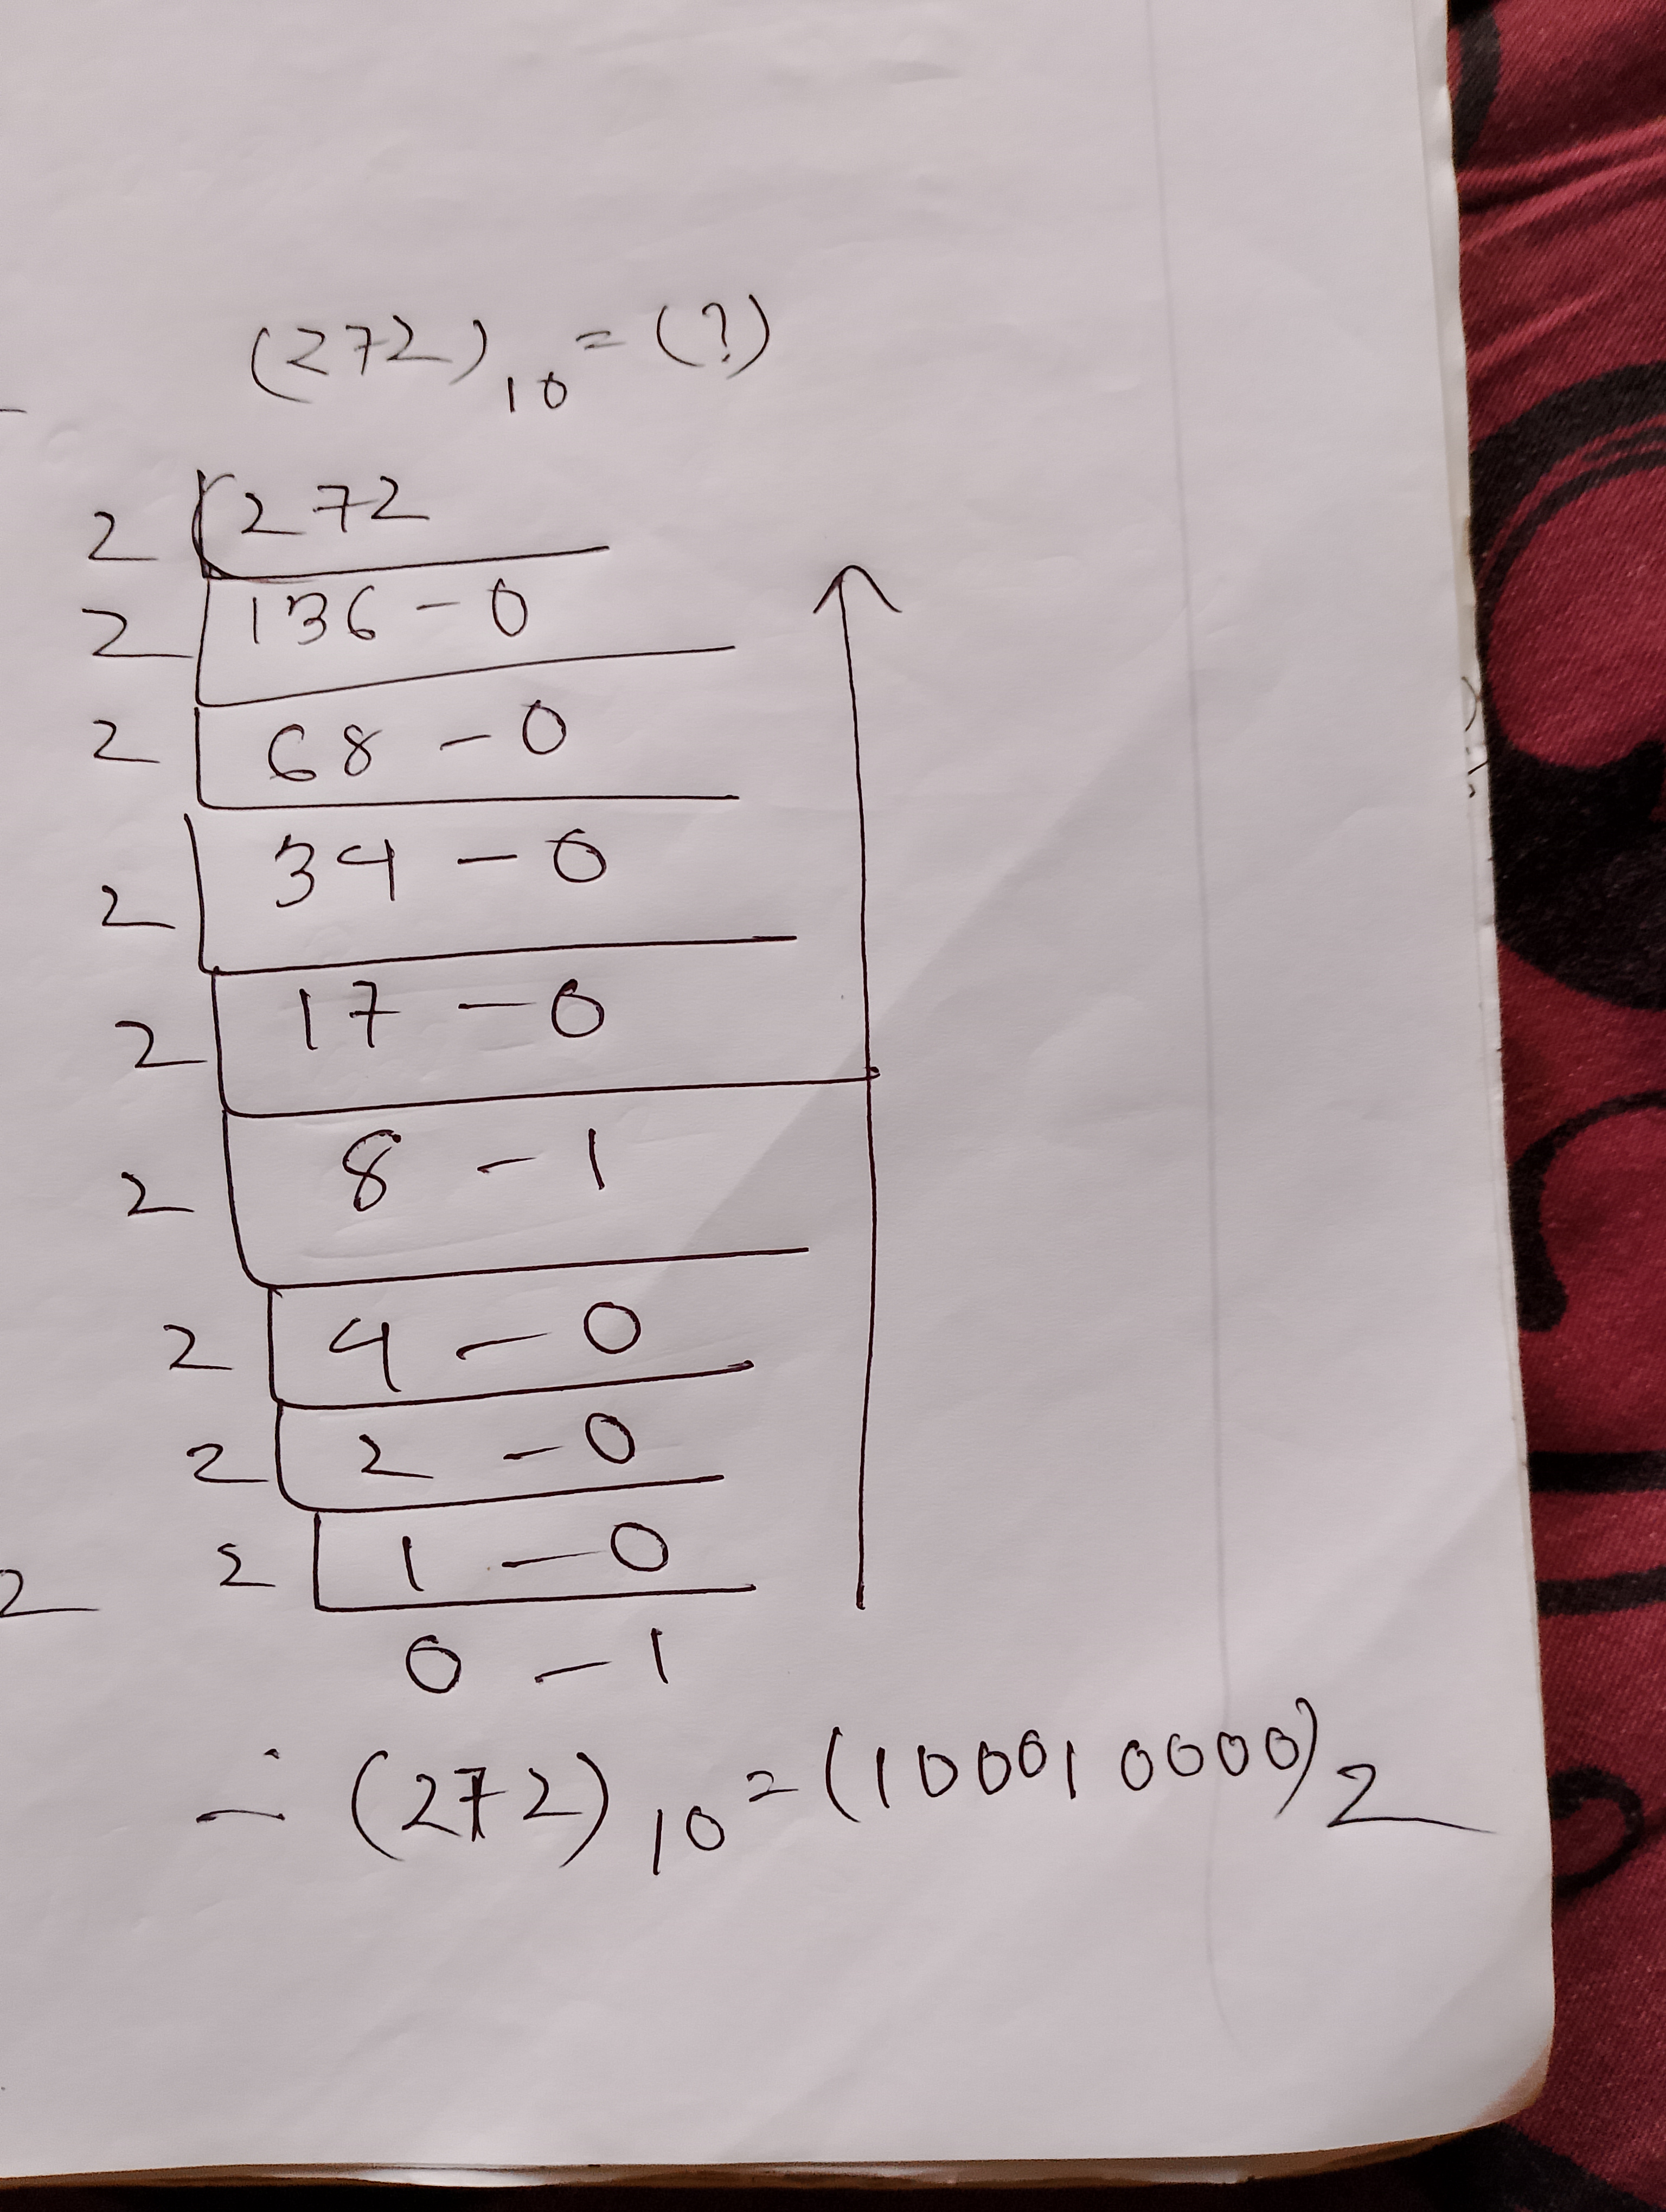 (272)10 = (?)
2 272
2 136 - 0
2 68 - 0
2 34 - 0
2 17 - 0
2 8 - 1
2 4 - 0
2 2 - 0
2 2 1 - 0
0 - 1
∴ (272)10 = (100010000)2